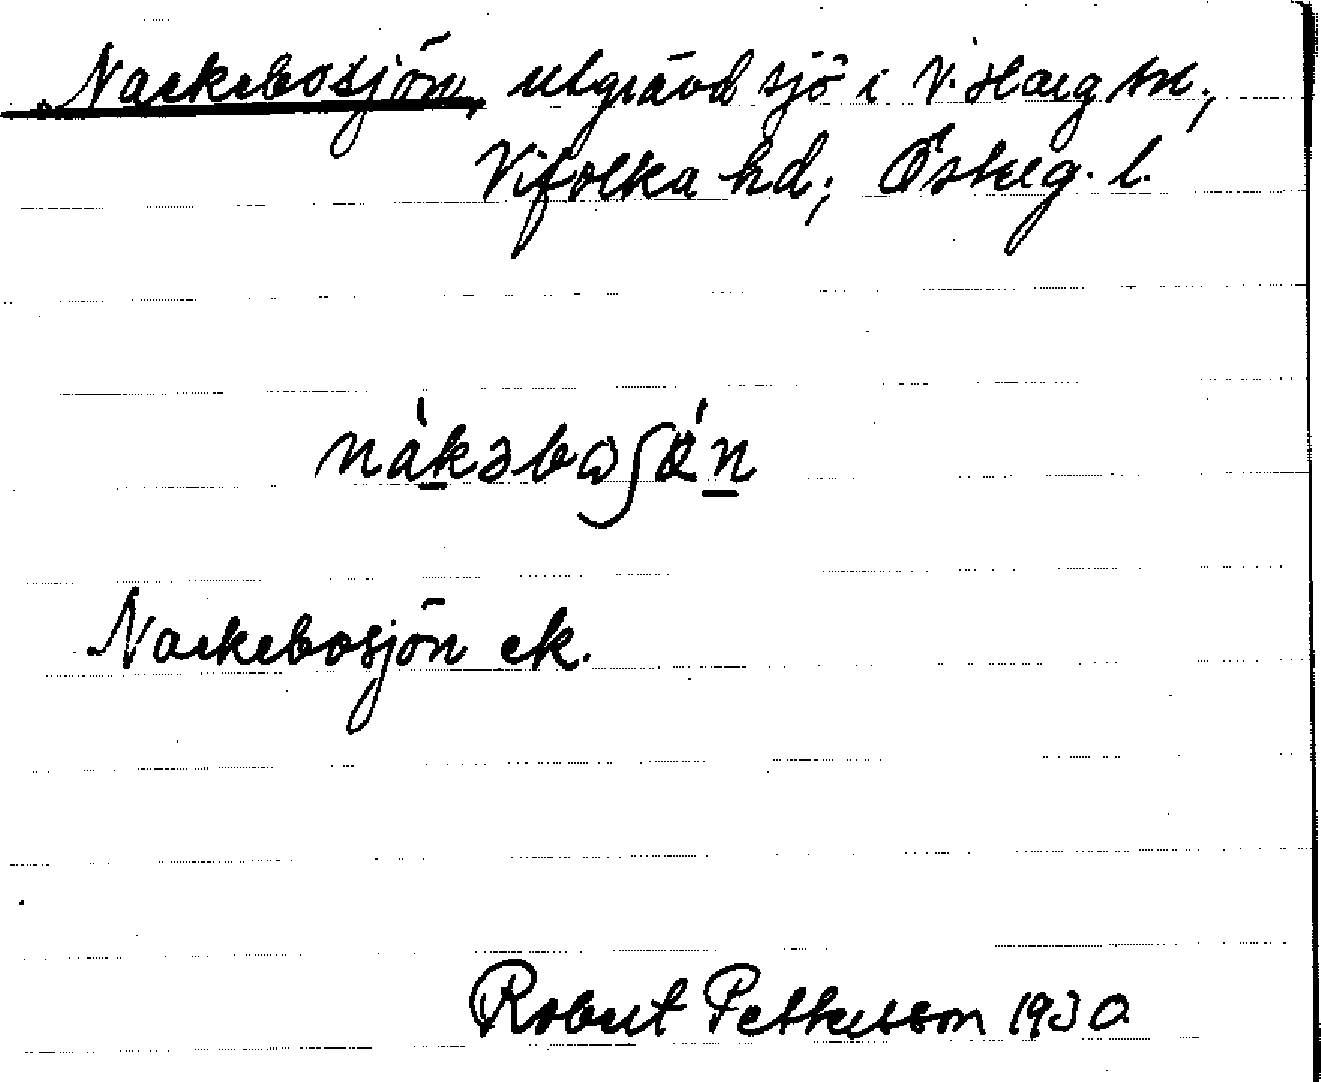 Nackebosjön, utgrävd sjö i V. Harg sn.;
Vifolka hd; Österg. l.
nàkəbaʃǿn
Nackebosjön ek.
Robert Petterson 1930